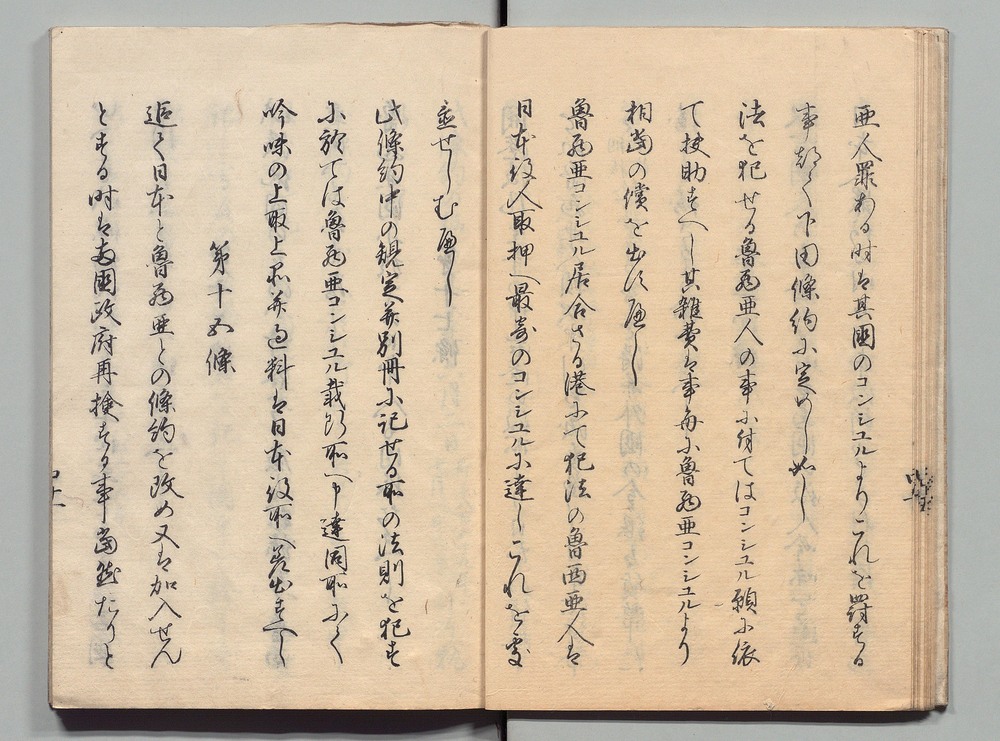 亜人罪ある時は其國のコンシユルよりこれを罸する
事都て下田條約に定めし如し
法を犯せる魯西亜人の事に付てはコンシユル願に依
て扶助すへし其雑費は事毎に魯西亜コンシユルより
相當の償を出すへし
魯西亜コンシユル居合さる港にて犯法の魯西亜人は
日本役人取押へ最寄のコンシユルに達しこれを處
置せしむ へし
此條約中の規定并別冊に記せる所の法則を犯す
に於ては魯西亜コンシユル裁断所へ申達同所にて
吟味の上取上品并過料は日本役所へ差出すへし
第十五條
追て日本と魯西亜との條約を改め又は加入せん
とする時は両國政府再検する事當然たりと